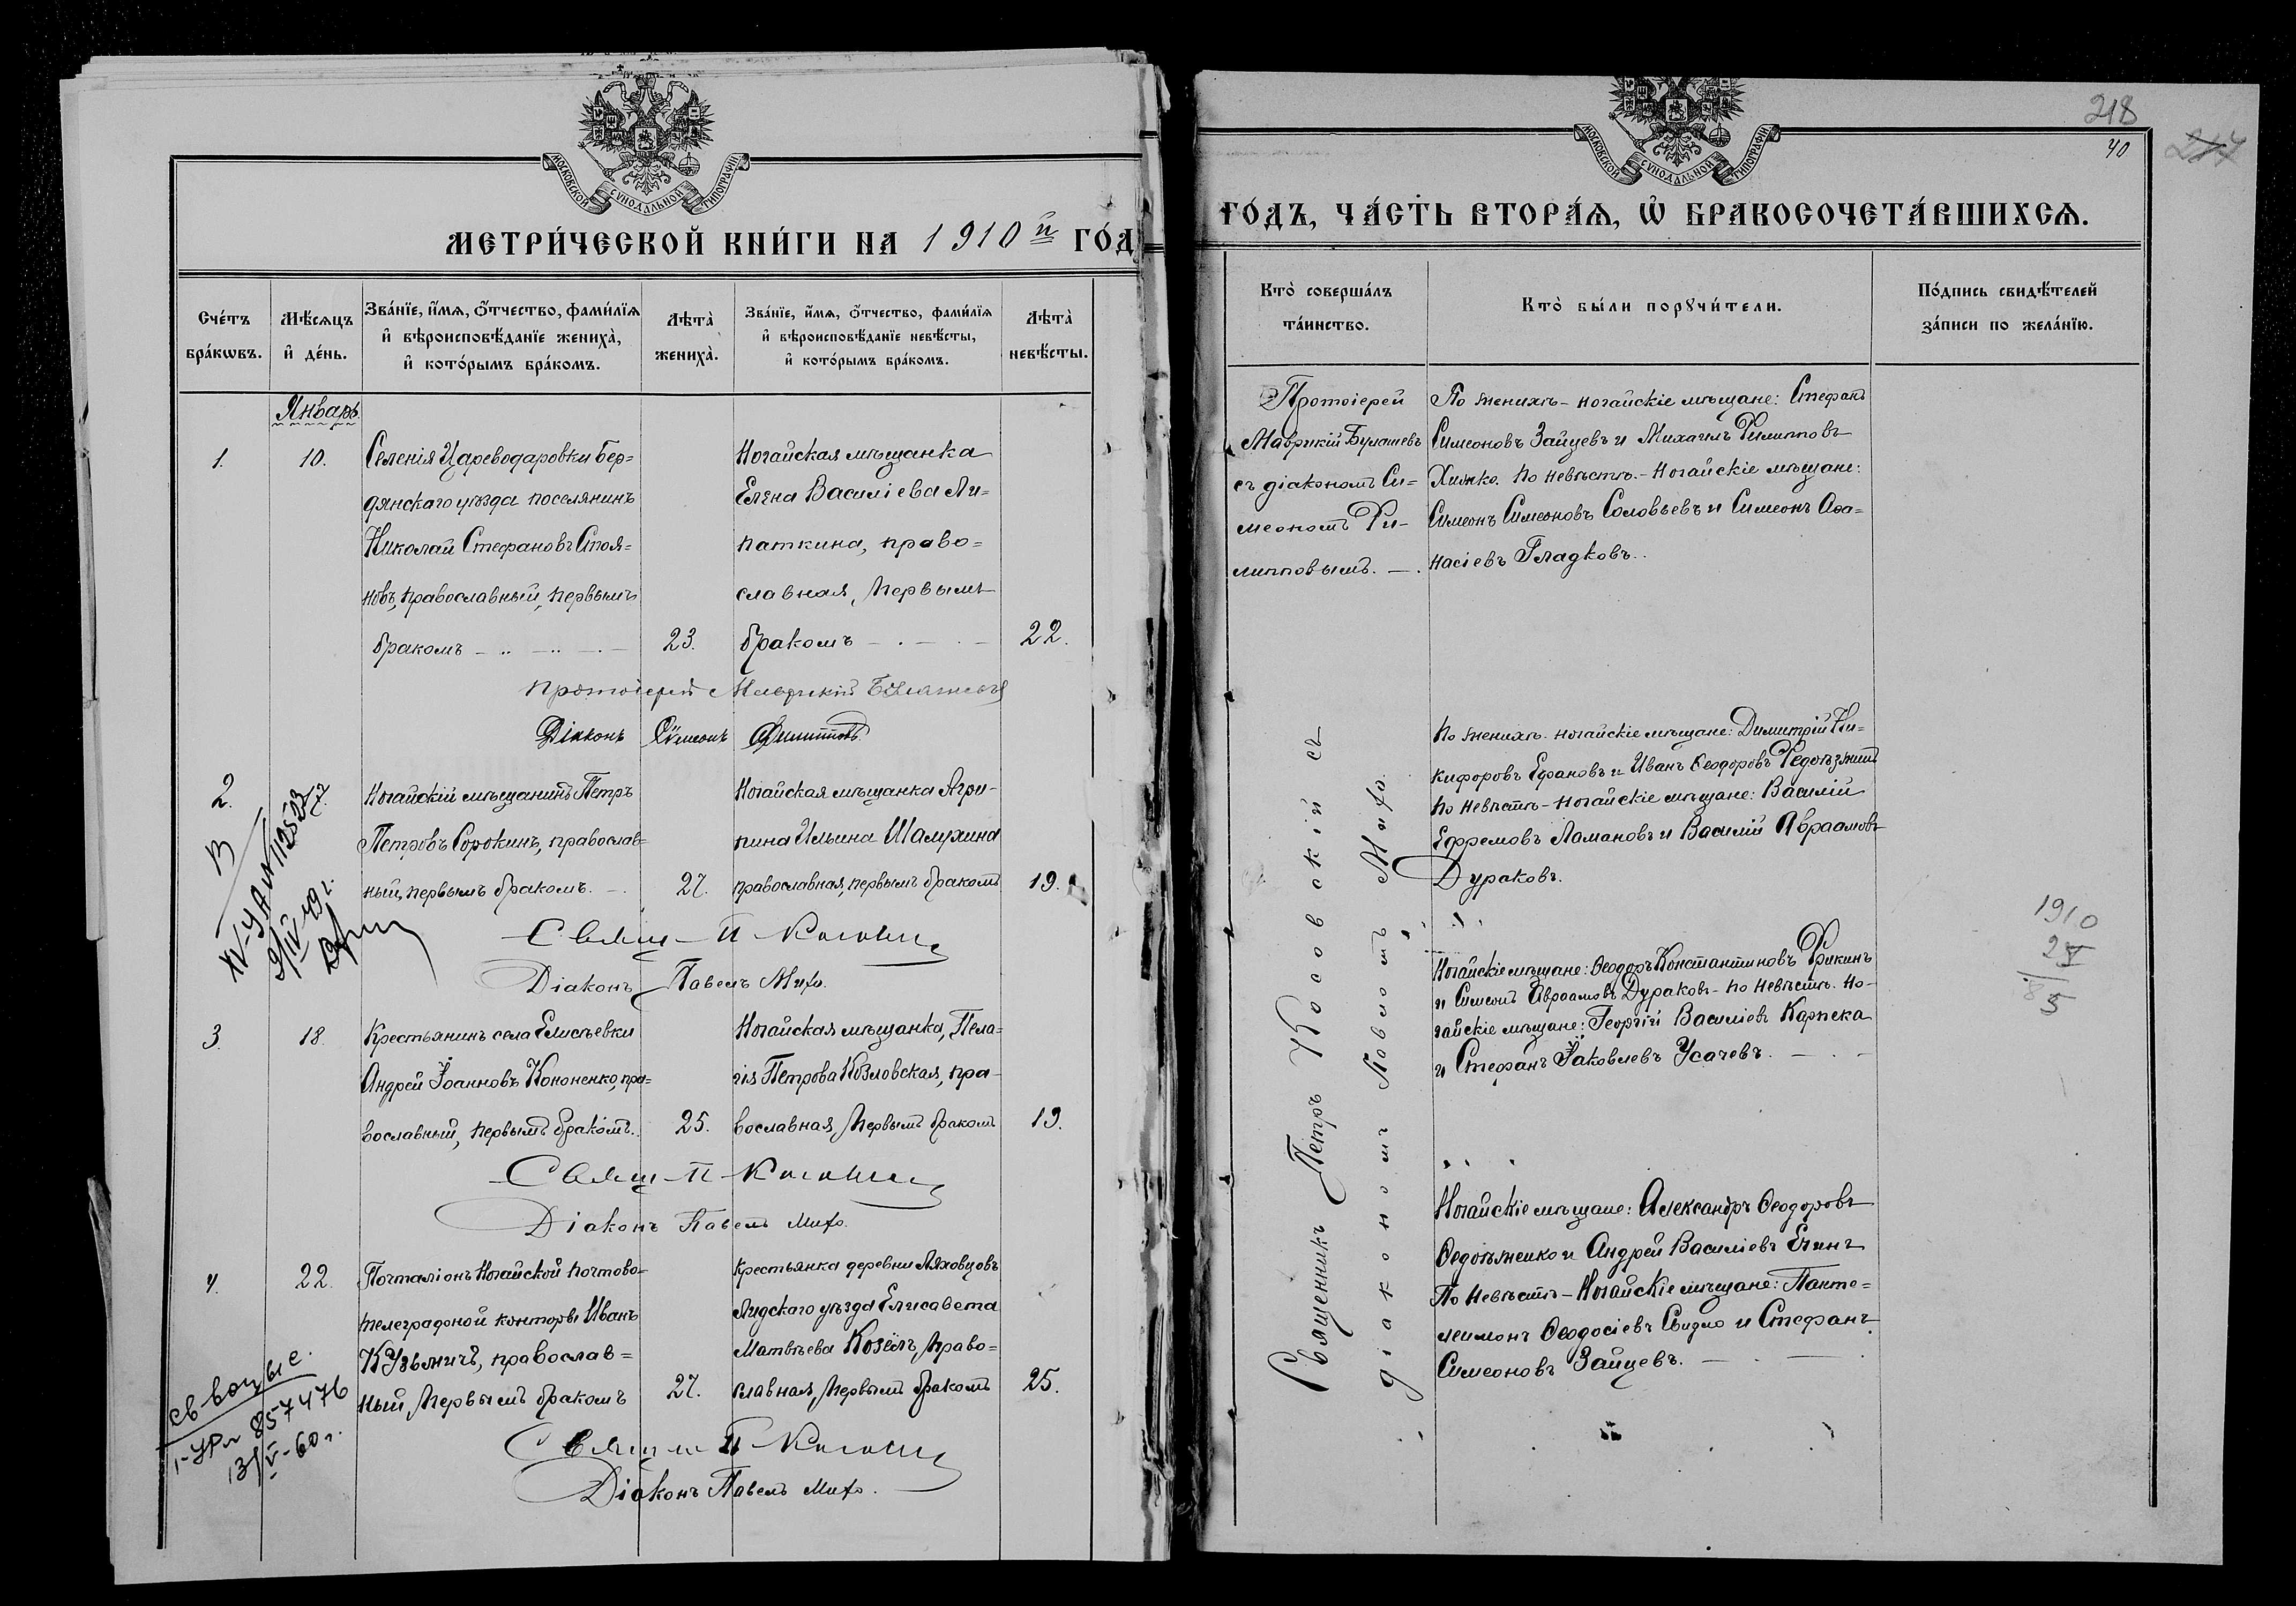 МОСКОВСКОЙ СѴНОДАЛЬНОЙ ТИПОГРАФІИ
МЕТРИ́ЧЕСКОЙ КНИ́ГИ НА 1910й ГО́Д
Сче́тъ бра́кѡвъ.
Мѣ́сяцъ и҆ де́нь.
Зва́нїе, и҆́мѧ, ѻ҆́тчество, фами́лїѧ
и҆ вѣроисповѣ́данїе женихà,
и҆ кото́рымъ бра́комъ.
Лѣ́тà женихà.
Зва́нїе, и҆́мѧ, ѻ҆́тчество, фами́лїѧ
и҆ вѣроисповѣ́данїе невѣ́сты,
и҆ кото́рымъ бра́комъ.
Лѣ́тà невѣ́сты.
Январь.
1.
10.
Селенія Цареводаровки Бер=
дянскаго уѣзда поселянинъ
Николай Стефановъ Стоя=
новъ, православный, первымъ
бракомъ
23.
Ногайская мѣщанка
Елена Василіева Ла=
паткина, право=
славная, первымъ
бракомъ
22.
Протоіерей Маврикій Булашевъ
Діаконъ Сѵмеонъ Филипповъ
2.
Ногайскій мѣщанинъ Петръ
Петровъ Сорокинъ, православ=
ный, первымъ бракомъ.
27.
Ногайская мѣщанка Агри-
пина Ильина Шамрина
православная, первымъ бракомъ
19.
Свящ П Косовск
Діаконъ Павелъ Михо.
3.
18.
Крестьянинъ села Елисѣевки
Андрей Іоанновъ Кононенко, пра=
вославный, первымъ бракомъ.
25.
Ногайская мѣщанка, Пела=
гія Петрова Козловская, пра-
вославная, первымъ бракомъ
19.
Свящ П Косовск
Діаконъ Павелъ Михо.
4.
22.
Почталіонъ Ногайской почтово-
телеграфной конторы Иванъ
Кузьмичъ, православ=
ный, первымъ бракомъ
27.
Крестьянка деревни Ляховцовъ
Лидскаго уѣзда Елисавета
Матвѣева Козёлъ, право=
славная, первымъ бракомъ
25.
св-во выс.
857476
13/V-60 г.
Свящ П Косовск
Діаконъ Павелъ Михо.
218
217
40
МОСКОВСКОЙ СѴНОДАЛЬНОЙ ТИПОГРАФІИ
ГО́ДЪ, ЧА́СТЬ ВТОРА́Ѧ, Ѽ БРАКОСОЧЕТА́ВШИХСѦ.
Кто̀ соверша́лъ
та́инство.
Кто̀ бы́ли порꙋчи́тели.
По́дпись свидѣ́телей
за́писи по жела́нїю.
Протоіерей
Маврикій Булашевъ
съ діакономъ Си=
меономъ Фи-
липповымъ.
По женихѣ - ногайскіе мѣщане: Стефанъ
Симеоновъ Зайцевъ и Михаилъ Филипповъ
Химко. По невѣстѣ. - Ногайскіе мѣщане:
Симеонъ Симеоновъ Соловьевъ и Симеонъ Аѳа=
насіевъ Гладковъ.
Священникъ Петръ Косовскій съ
діакономъ Павломъ Михо.
По женихѣ - ногайскіе мѣщане: Димитрій Ни-
кифоровъ Ефановъ и Иванъ Ѳеодоровъ
По невѣстѣ - ногайскіе мѣщане: Василій
Ефремовъ Ламановъ и Василій Авраамовъ
Дураковъ.
Ногайскіе мѣщане: Ѳеодоръ Константиновъ Фикинъ
и Симеонъ Авраамовъ Дураковъ - по невѣстѣ. Но-
гайскіе мѣщане: Георгій Василіевъ Карпека
и Стефанъ Іаковлевъ Усачевъ.
1910
Ногайскіе мѣщане: Александръ Ѳеодоровъ
Ѳедоѣженко и Андрей Василіевъ Елинъ
По невѣстѣ - Ногайскіе мѣщане: Панте=
леимонъ Ѳеодосіевъ Свидло и Стефанъ
Симеоновъ Зайцевъ.